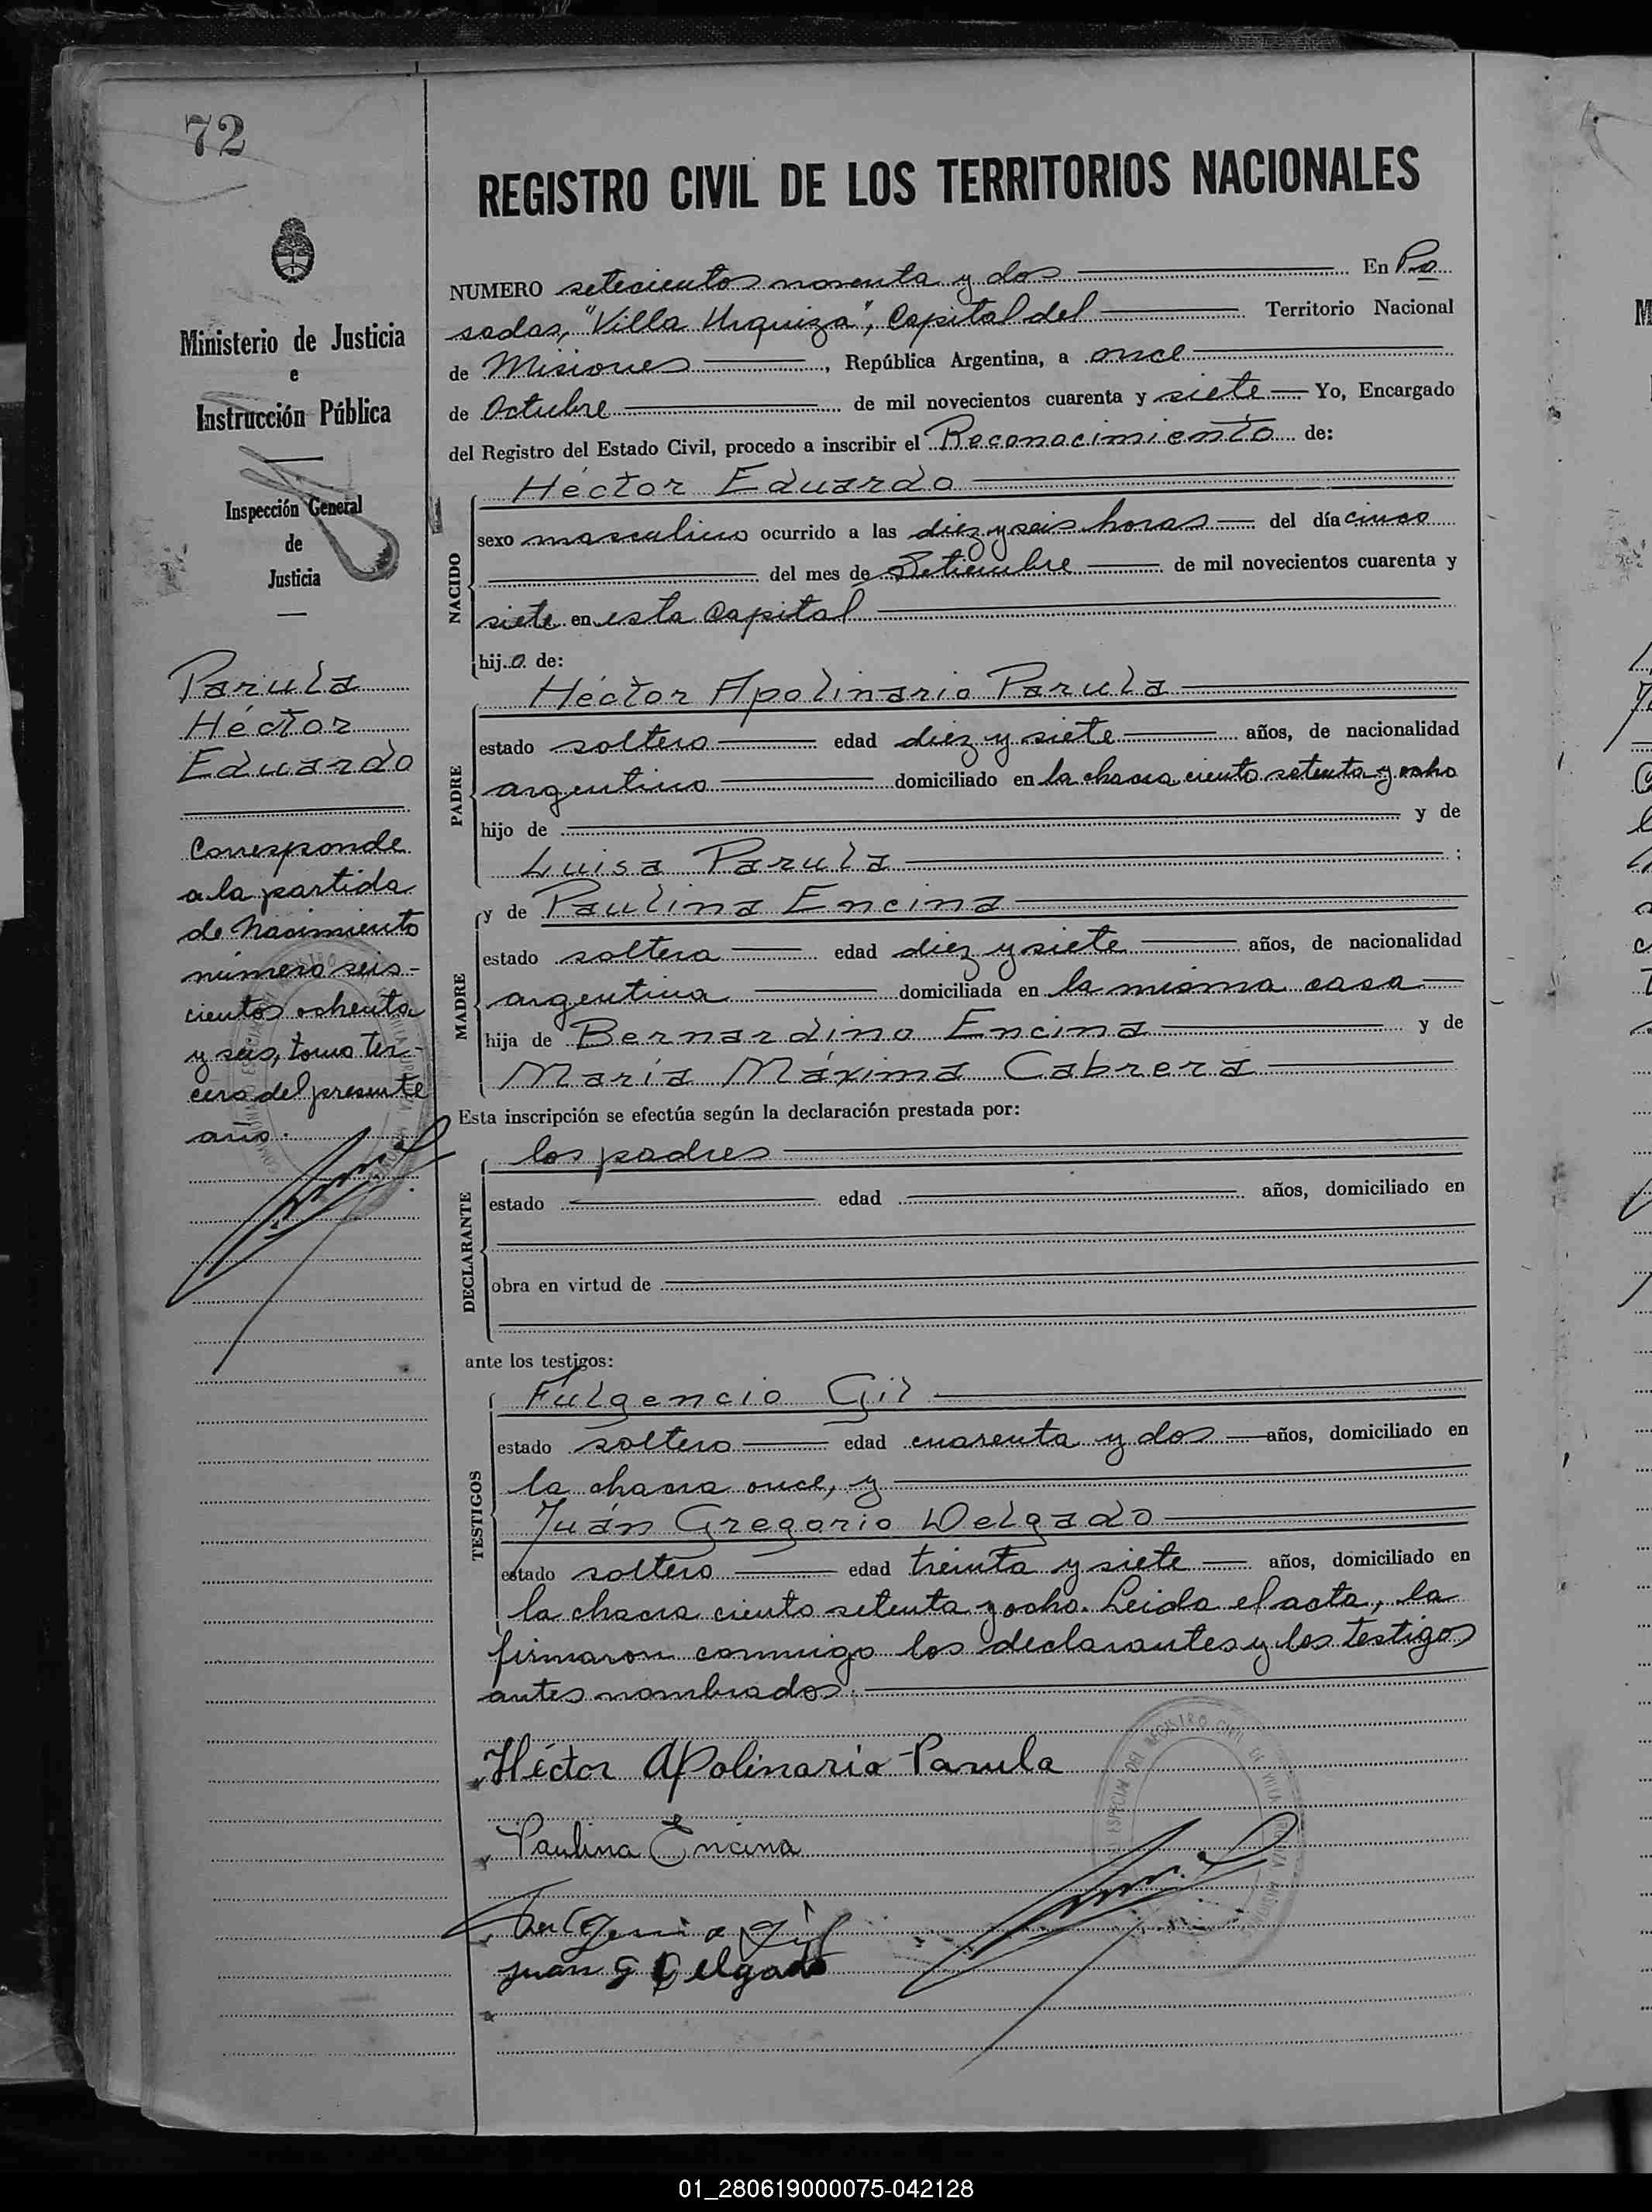 72
REGISTRO CIVIL DE LOS TERRITORIOS NACIONALES
Ministerio de Justicia
e
Instrucción Pública
Inspección General
de
Justicia
Parula
Héctor
Eduardo
Corresponde
a la partida
de Nacimiento
número seis-
cientos ochenta
y seis, tomo ter-
cero del presente
año.
NUMERO setecientos noventa y dos En Po
sadas, "Villa Urquiza", Capital del Territorio Nacional
de Misiones, República Argentina, a once
de Octubre de mil novecientos cuarenta y siete Yo, Encargado
del Registro del Estado Civil, procedo a inscribir el Reconocimiento de:
NACIDO
Héctor Eduardo
sexo masculino ocurrido a las diez y seis horas del día cinco
del mes de Setiembre de mil novecientos cuarenta y
siete en esta Capital
hijo de:
PADRE
Héctor Apolinario Parula
estado soltero edad diez y siete años, de nacionalidad
argentino domiciliado en la chacra ciento setenta y ocho
hijo de y de
Luisa Parula ;
MADRE
y de Paulina Encina
estado soltera edad diez y siete años, de nacionalidad
argentina domiciliada en la misma casa
hija de Bernardino Encina y de
María Máxima Cabrera
Esta inscripción se efectúa según la declaración prestada por:
DECLARANTE
los padres
estado edad años, domiciliado en
obra en virtud de
ante los testigos:
TESTIGOS
Fulgencio Gil
estado soltero edad cuarenta y dos años, domiciliado en
la chacra once, y
Juán Gregorio Delgado
estado soltero edad treinta y siete años, domiciliado en
la chacra ciento setenta y ocho. Leida el acta, la
firmaron conmigo los declarantes y los testigos
antes nombrados.
Héctor Apolinario Parula
Paulina Encina
Fulgencio Gil
Juan G Delgado
01_280619000075-042128